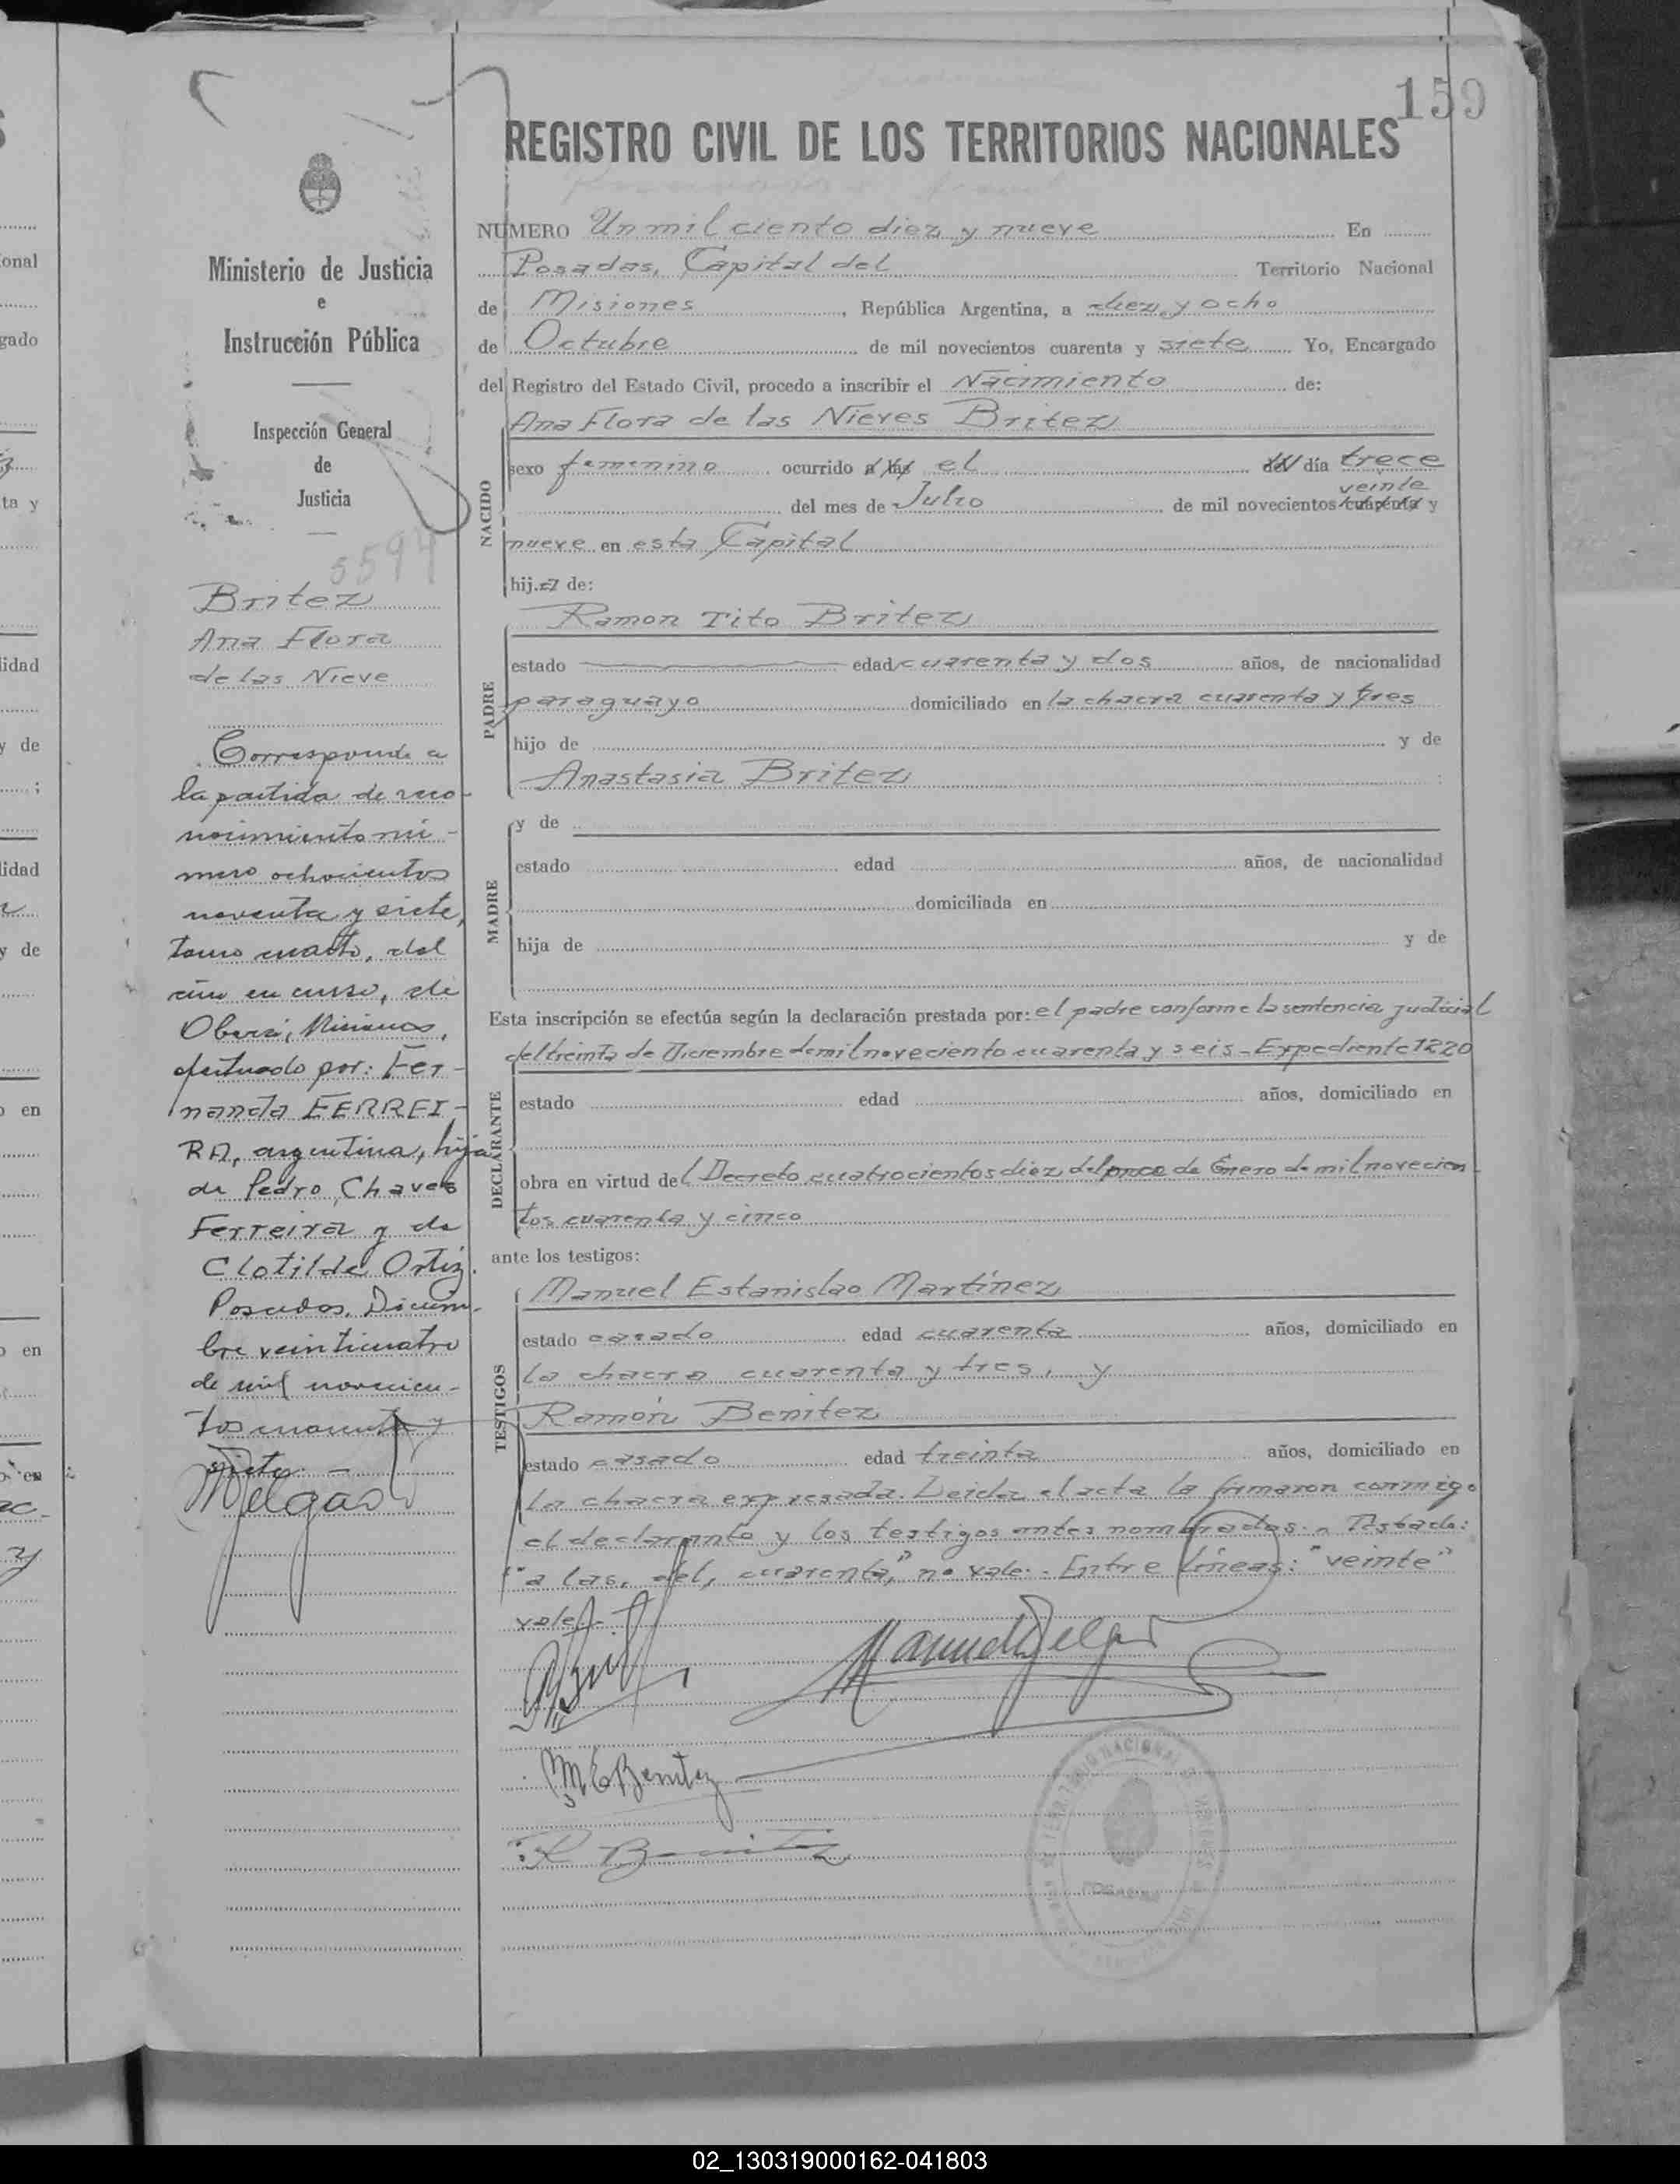 159
REGISTRO CIVIL DE LOS TERRITORIOS NACIONALES
Ministerio de Justicia
e
Instrucción Pública
Inspección General
de
Justicia
5594
Britez
Ana Flora
de las Nieve
Corresponde a
la partida de reco-
nocimiento nú-
mero ochocientos
noventa y siete,
tomo cuarto, del
año en curso, de
Oberá, Misiones,
efectuado por: Fer-
nanda FERREI-
RA, argentina, hija
de Pedro Chaves
Ferreira y de
Clotilde Ortiz.
Posadas, Diciem-
bre veinticuatro
de mil novecien-
tos cuarenta y
siete. -
MDelgado
NUMERO Un mil ciento diez y nueve En
Posadas, Capital del Territorio Nacional
de Misiones, República Argentina, a diez y ocho
de Octubre de mil novecientos cuarenta y siete Yo, Encargado
del Registro del Estado Civil, procedo a inscribir el Nacimiento de:
NACIDO
Ana Flora de las Nieves Britez
sexo femenino ocurrido a las el del día trece
veinte
del mes de Julio de mil novecientos cuarenta y
nueve en esta Capital
hij.a de:
PADRE
Ramon Tito Britez
estado edad cuarenta y dos años, de nacionalidad
paraguayo domiciliado en la chacra cuarenta y tres
hijo de y de
Anastasia Britez
MADRE
y de
estado edad años, de nacionalidad
domiciliada en
hija de y de
Esta inscripción se efectúa según la declaración prestada por: el padre conforme la sentencia judicial
del treinta de Diciembre de mil noveciento cuarenta y seis - Expediente 1220
DECLARANTE
estado edad años, domiciliado en
obra en virtud del Decreto cuatrocientos diez del once de Enero de mil novecien-
tos cuarenta y cinco
ante los testigos:
TESTIGOS
Manuel Estanislao Martínez
estado casado edad cuarenta años, domiciliado en
la chacra cuarenta y tres, y
Ramón Benitez
estado casado edad treinta años, domiciliado en
la chacra expresada. Leída el acta la firmaron conmigo
el declarante y los testigos antes nombrados. - Testado:
"a las, del, cuarenta," no vale. - Entre líneas: "veinte"
vale. -
Manuel Delgado
M E Benitez
R Benitez
02_130319000162-041803